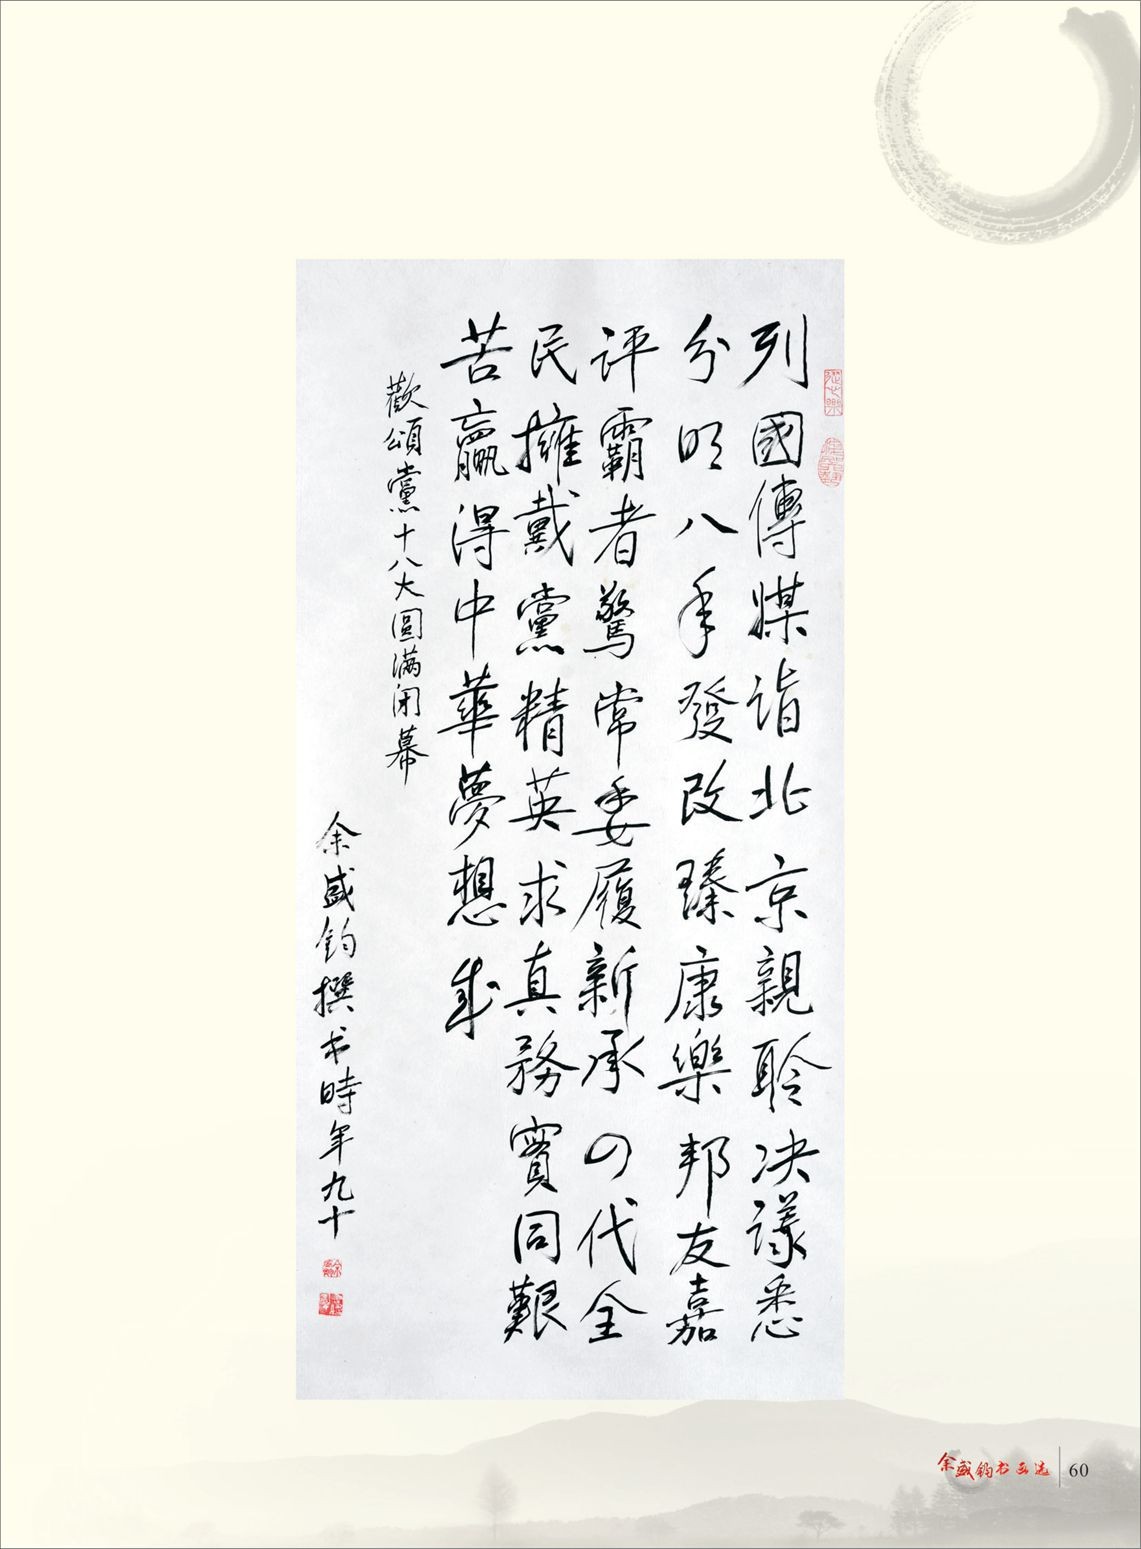 列國傳媒詣北京親聆决議悉
分明八年發改臻康樂邦友嘉
评霸者驚常委履新承四代全
民擁戴黨精英求真務實同艱
苦贏得中華夢想成
歡頌黨十八大圆满闭幕
余盛鈞撰书時年九十
余盛鈞书画选
60